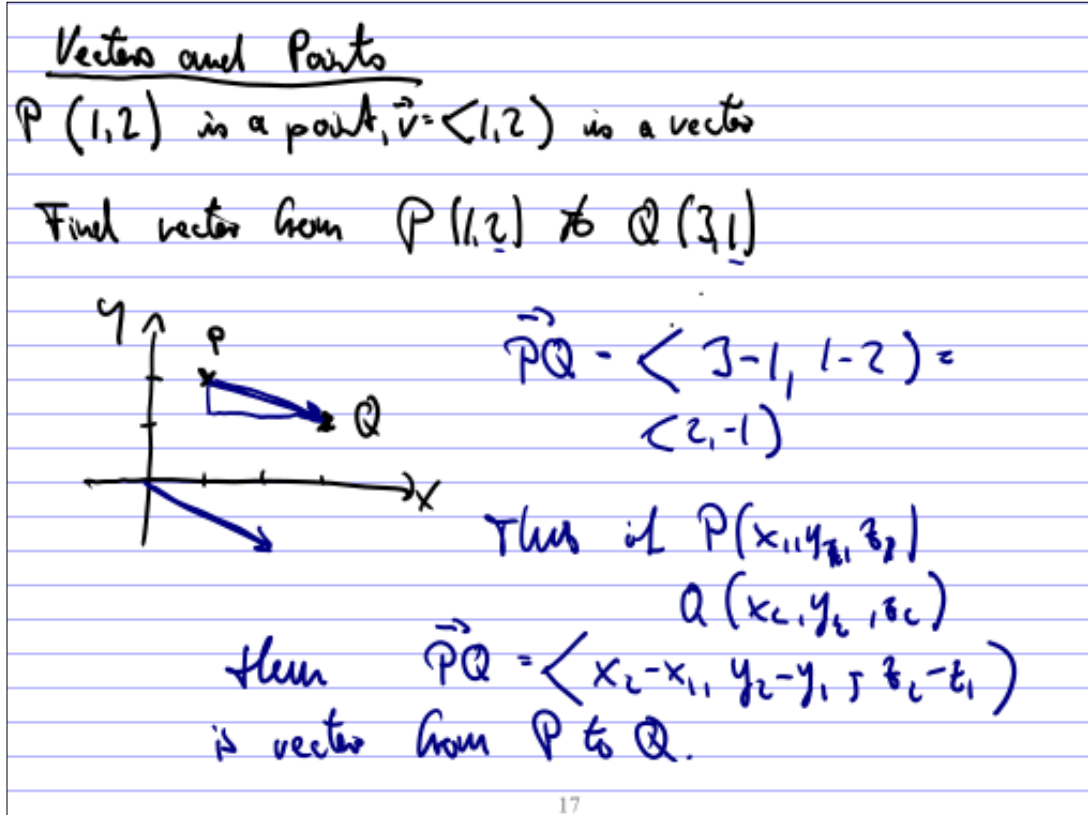 Vectors and Points
P (1,2) is a point, v⃗=<1,2) is a vector
Find vector from P (1,2) to Q (3,1)
y
P
Q
x
PQ⃗ = < 3-1, 1-2 ) =
<2,-1)
Thus if P(x₁,y₁,z₁)
Q (x₂,y₂,z₂)
then PQ⃗ = < x₂-x₁, y₂-y₁, z₂-z₁ )
is vector from P to Q.
17